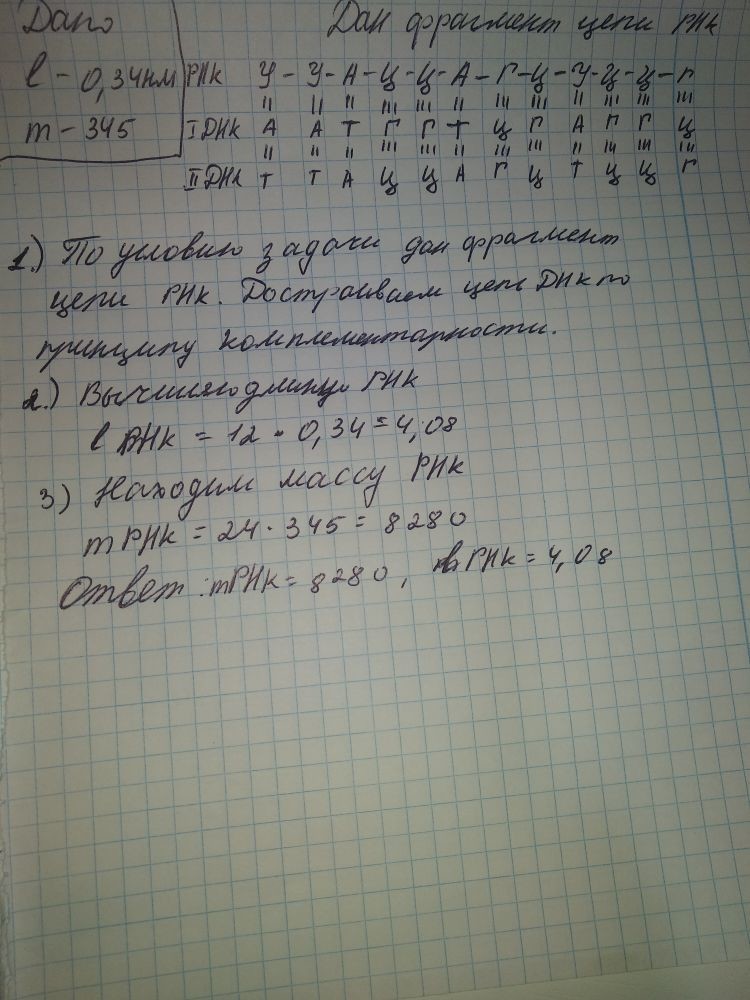 Дано
Дан фрагмент цепи РНК
l - 0,34нм
m - 345
РНК У - У - А - Ц - Ц - А - Г - Ц - У - Ц - Ц - Г
I ДНК А А Т Г Г Т Ц Г А Г Г Ц
II ДНК Т Т А Ц Ц А Г Ц Т Ц Ц Г
1.) По условию задачи дан фрагмент
цепи РНК. Достраиваем цепь ДНК по
принципу комплементарности.
2.) Вычисляю длину РНК
l РНК = 12 · 0,34 = 4,08
3) Находим массу РНК
m РНК = 24 · 345 = 8280
Ответ: mРНК = 8280, РНК = 4,08